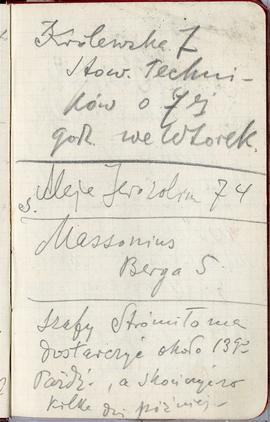 Królewska 7
Stow. Techni-
ków o 7ej
godz. we Wtorek.
Aleje Jerozolim 74
Massonius
Berga 5
szafy Stromiło ma
dostarczyć około 13go
Paźdź., a skończy to
kilka dni później